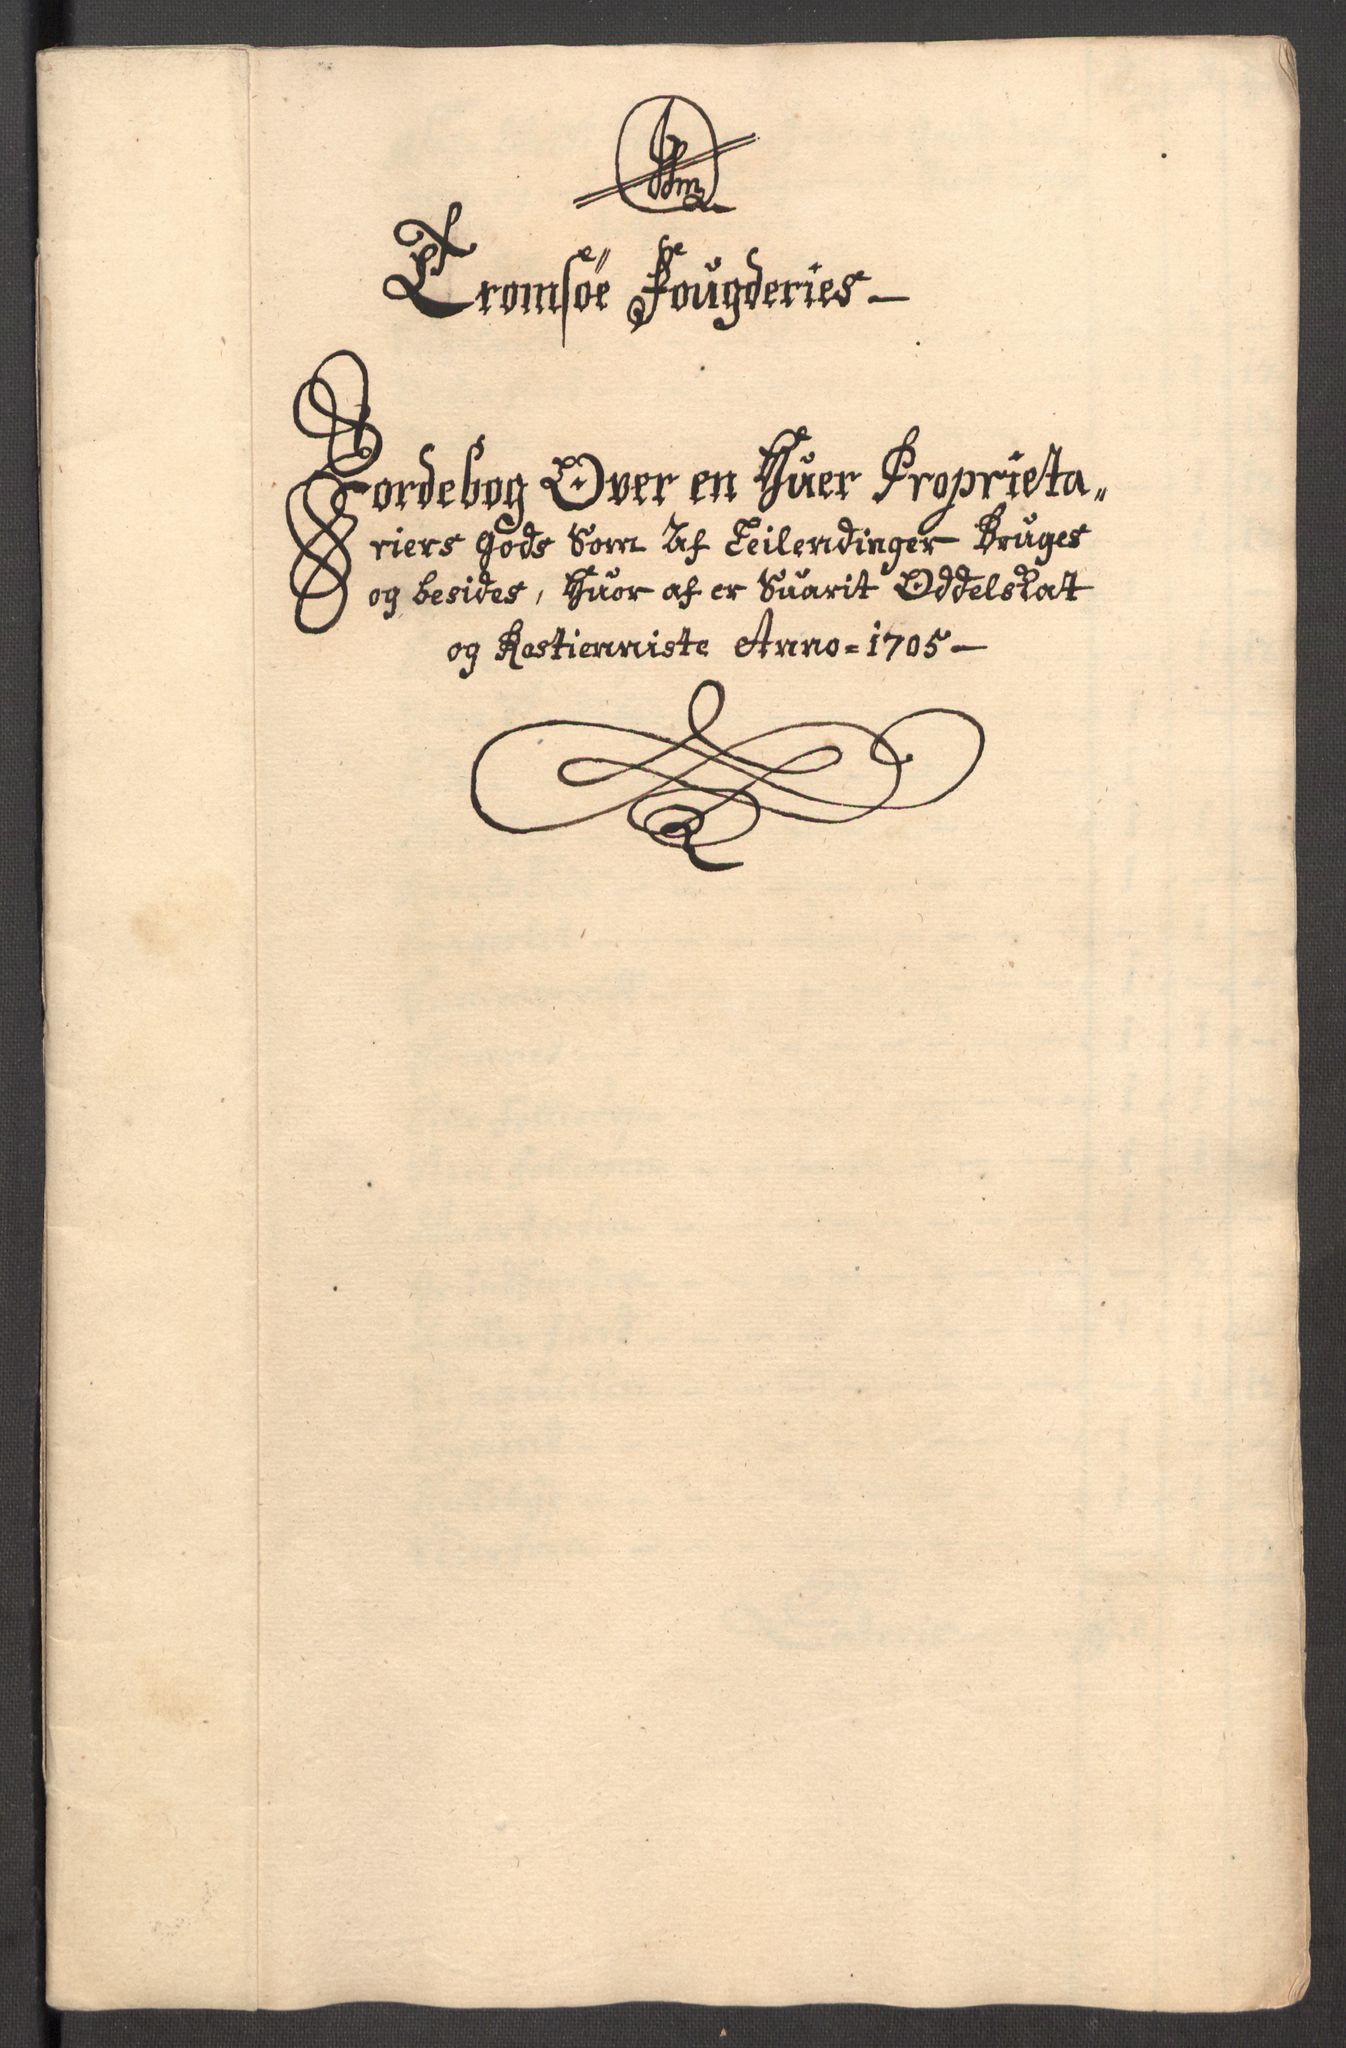 Tromsöe Fougderies
Jordebog Over en Huer Proprieta„
riers gods Som Af Leilendinger Bruges
og besides, Huor af er Suarit Oddelskat
og Rostienniste Anno = 1705